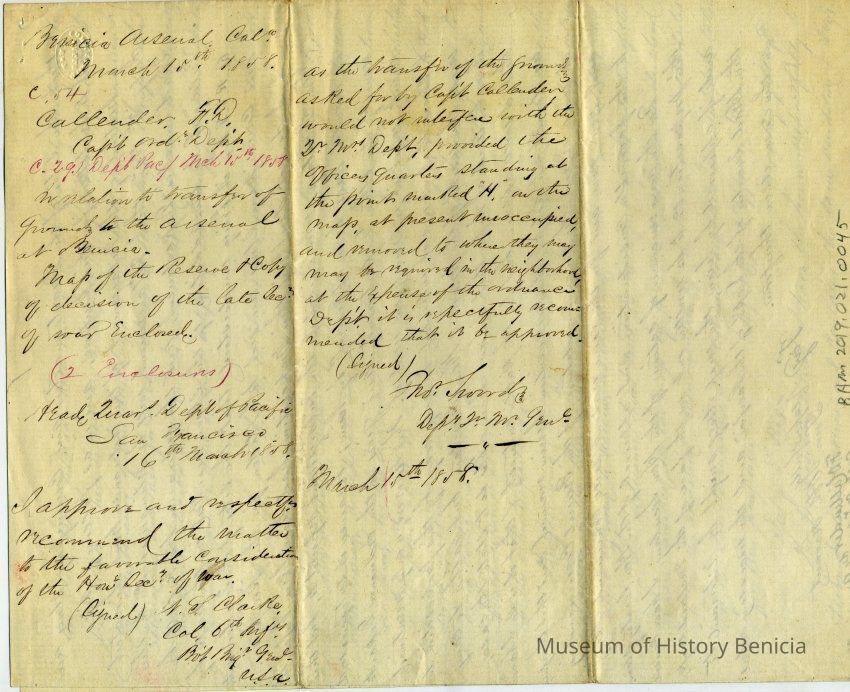 Benicia Arsenal, Cala
March 15th 1858.
C. 54
Callender, F.D.
Capt. Ordn Dept.
C. 29) Dept Pacf Mch 15th 1858
In relation to transfer of
grounds to the Arsenal
at Benicia.
Map of the Reserve & Copy
of decision of the late Secy
of war Enclosed.
(2 Enclosures)
Head Quars. Dept of Pacific
San Francisco
16th March 1858.
I approve and respectfy
recommend the matter
to the favorable consideration
of the Honl Secy of War.
(Signed) N. S. Clarke,
Col 6th Infy
Bvt Brigr Genl
U.S.A.
as the transfer of the grounds
asked for by Capt Callender
would not interfere with the
Qr Mrs Dept, provided the
Officers quarters standing at
the points marked "H" on the
map, at present unoccupied,
and removed to where they may
may be required in the neighborhood,
at the Expense of the ordnance
Dept. it is respectfully recom-
mended that it be approved.
(Signed)
Thos. Swords
Depy Qr Mr Genl
March 15th 1858.
BAM 2019.021.0045
Museum of History Benicia